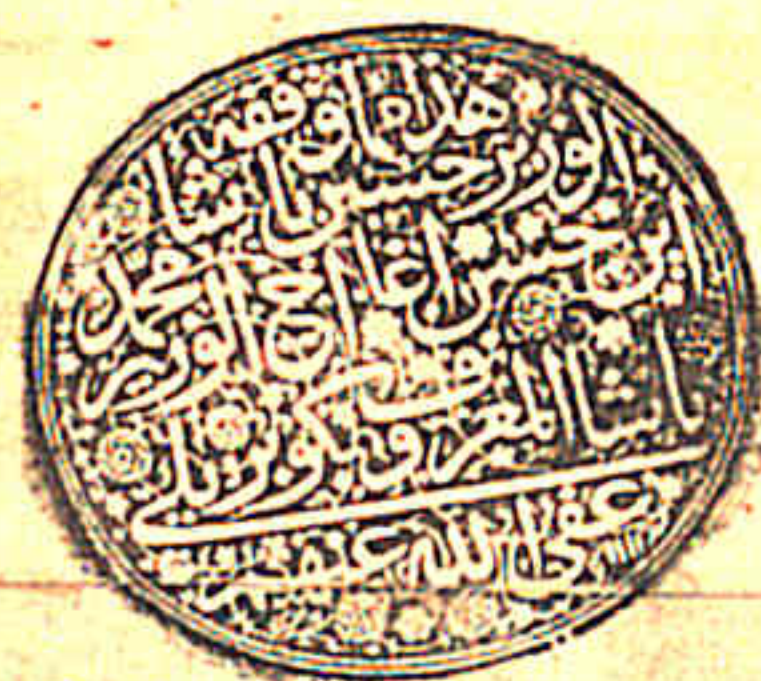 هذا ما وقفه
الوزير حسين باشا
ابن حسن اغا اخى الوزير محمد
باشا المعروف بكوپريلى
عفى الله عنهم